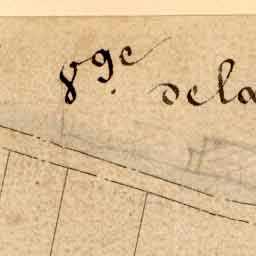 8.ge dela